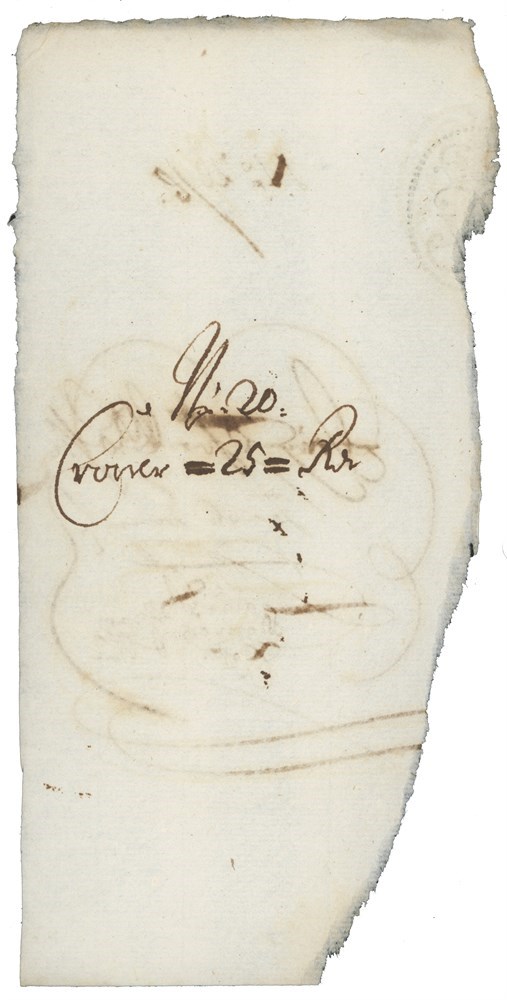 N: 20:
Croner =25= Rdr